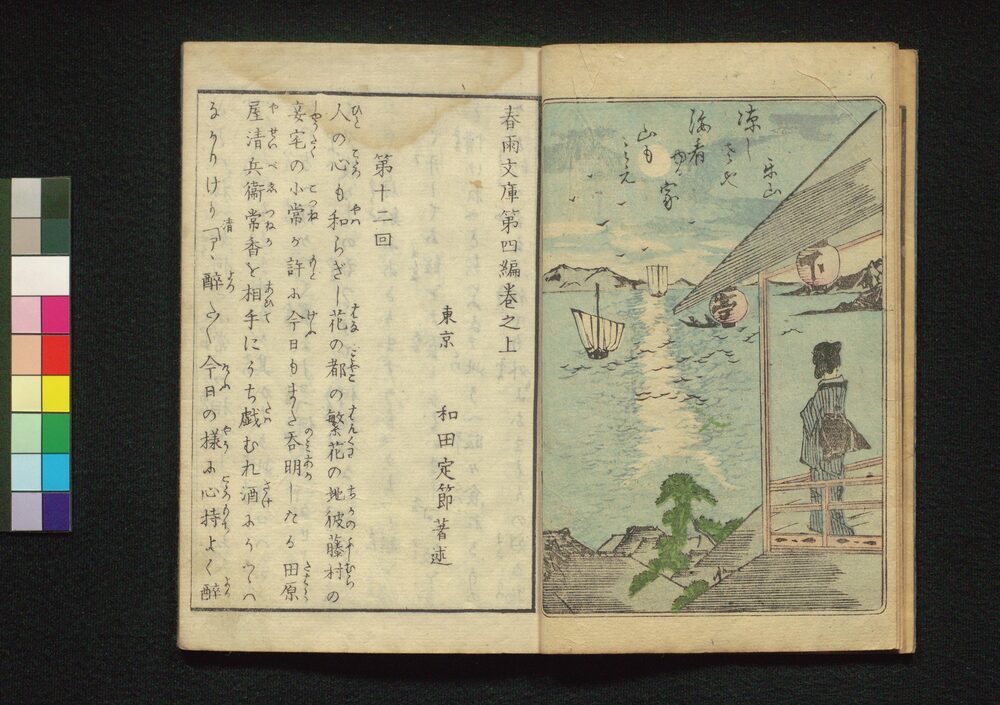 乐山
凉しさや
海看
ゆる家
山も
みえ
春雨文庫第四編巻之上
東京　和田定節著述
第十二回
人の心も和らぎし花の都の繁花の地彼藤村の
妾宅の小常が許に今日もまた呑明したる田原
屋清兵衞常香を相手にうち戯むれ酒にうつゝ
なかりけり清「アヽ醉た〱今日の様に心持よく醉